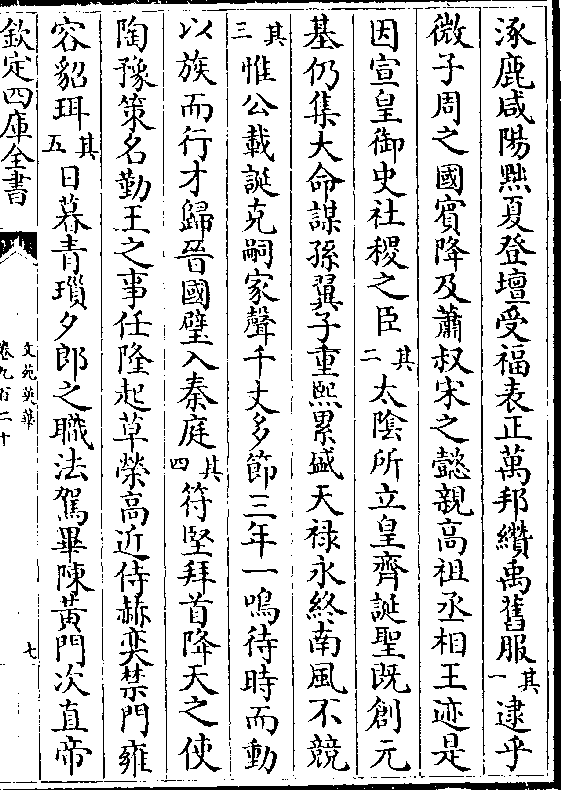 涿鹿咸陽㸃夏登壇受福表正萬邦纘禹舊服其一逮乎
微子周之國賓降及蕭叔宋之懿親高祖丞相王迹是
因宣皇御史社稷之臣其二太陰所立皇齊誕聖既創元
基仍集大命謀孫翼子重熙累盛天禄永終南風不競
其三惟公載誕克嗣家聲千丈多節三年一鳴待時而動
以族而行才歸晉國璧入秦庭其四符堅拜首降天之使
陶豫策名勤王之事任隆起草榮高近侍赫奕禁門雍
容貂珥其五日暮青瑣夕郎之職法駕畢陳黄門次直帝
欽定四庫全書
文苑英華
卷九百二十
七